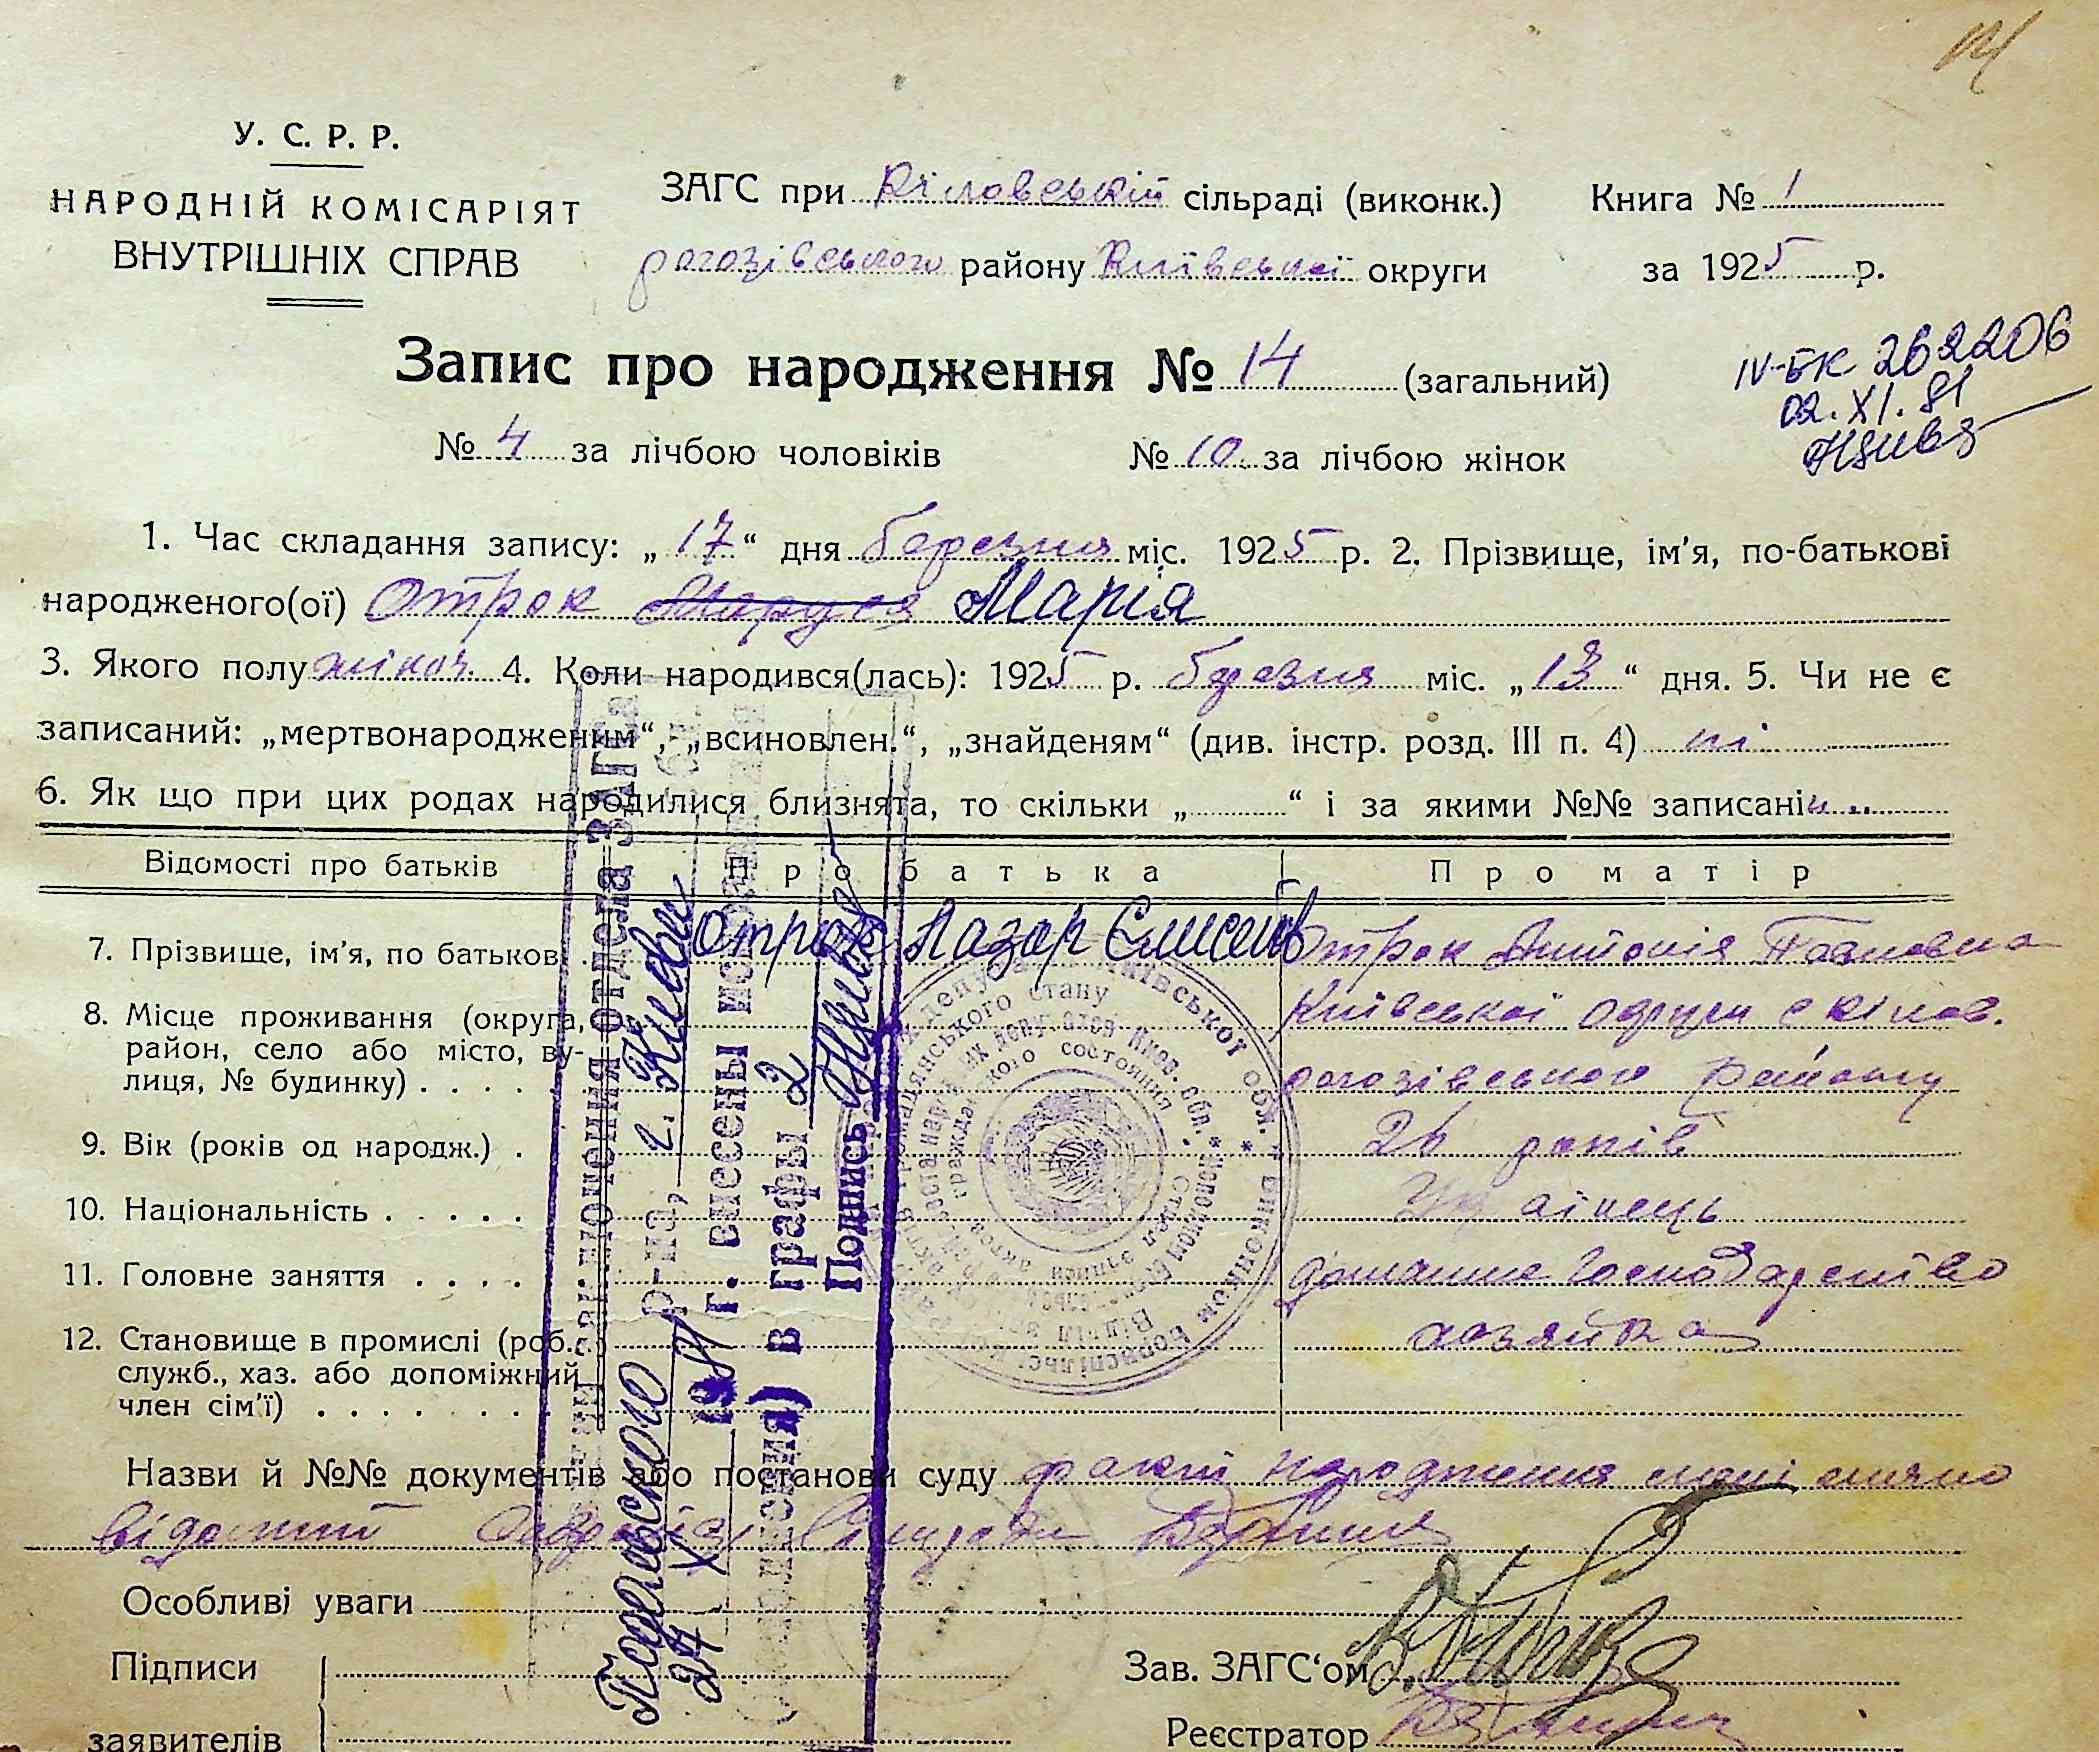 У. С. Р. Р.
НАРОДНІЙ КОМІСАРІЯТ
ВНУТРІШНІХ СПРАВ
ЗАГС при Кіловській сільраді (виконк.)
рогозівського району Київської округи
Книга № 1
за 1925 р.
Запис про народження № 14 (загальний)
IV-БК 262206
02. XI. 81
№ 4 за лічбою чоловіків № 10 за лічбою жінок
1. Час складання запису: „ 17 “ дня березня міс. 1925 р. 2. Прізвище, ім'я, по-батькові
народженого(ої) Отрок Маруся Марія
3. Якого полу жіноч. 4. Коли народився(лась): 1925 р. березня міс. „ 13 “ дня. 5. Чи не є
записаний: „мертвонародженим“, „всиновлен.“, „знайденям“ (див. інстр. розд. III п. 4) ні
6. Як що при цих родах народилися близнята, то скільки „ “ і за якими №№ записані
Відомості про батьків Про батька Про матір
7. Прізвище, ім'я, по батькові Отрок Лазар Єлисейов Отрок Антонія Павловна
8. Місце проживання (округа, Київської округи с Кілов.
район, село або місто, ву- рогозівського району
лиця, № будинку) . . . .
9. Вік (років од народж.) . 26 років
10. Національність . . . . . Українець
11. Головне заняття . . . . домашнє господарство
12. Становище в промислі (роб. хозяйка
служб., хаз. або допоміжний
член сім'ї) . . . . . . .
Назви й №№ документів або постанови суду факт народження мені
відомий
Особливі уваги
Підписи
заявителів
Зав. ЗАГС‘ом
Реєстратор
отдела ЗАГСа
Подольского р-на, г. Киева
24 XI 1981 г. внесены
в графы 2
Подпись